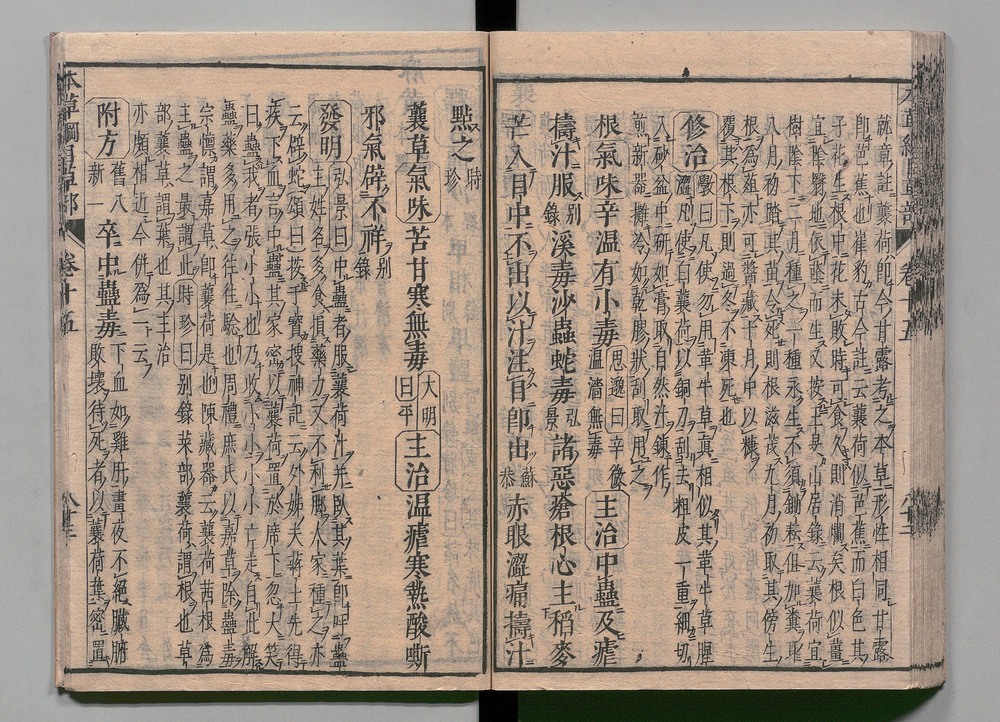 就章註蘘荷即今甘露考之本草形性相同甘露
即芭蕉也崔豹古今註云蘘荷似芭蕉而白色其
子花生根中花未敗時可食久則消爛矣根似薑
宜陰翳地依蔭而生又按王旻山居錄云蘘荷宜
樹陰下二月種之一種永生不須鋤耘但加糞耳
八月初踏其苗令死則根滋茂九月初取其傍生
根為葅亦可醬藏十月中以糠
覆其根下則過冬不凍死也
修治斅曰凡使勿用革牛草真相似其革牛草腥
濇凡使白蘘荷以銅刀刮去粗皮一重細切
入砂盆中研如膏取自然汁鍊作
煎新器攤冷如乾膠狀刮取用之
根氣味辛温有小毒思邈曰辛微温濇無毒主治中蠱及瘧
擣汁服別錄溪毒沙蟲蛇毒弘景諸惡瘡根心主稻麥
芒入目中不出以汁注目即出蘇恭赤眼澀痛擣汁
點之時珍
蘘草氣味苦甘寒無毒大明曰平主治温瘧寒熱酸嘶
邪氣辟不祥別錄
發明弘景曰中蠱者服蘘荷汁并臥其葉即呼蠱
主姓名多食損藥力又不利脚人家種之亦
云辟蛇頌曰按干寶搜神記云外姊夫蔣士先得
疾下血言中蠱其家密以蘘荷置於席下忽大笑
曰蠱我者張小小也乃收小小小小亡走自此解
蠱藥多用之往往驗也周禮庶氏以嘉草除蠱毒
宗懍謂嘉草即蘘荷是也陳藏器云蘘荷茜根為
主蠱之最謂此時珍曰別錄菜部蘘荷謂根也草
部蘘草謂葉也其主治
亦頗相近今併為一云
附方舊八新一卒中蠱毒下血如雞肝晝夜不絕臟腑
敗壞待死者以蘘荷葉密置
卷十五
本草綱目草部
卷十五